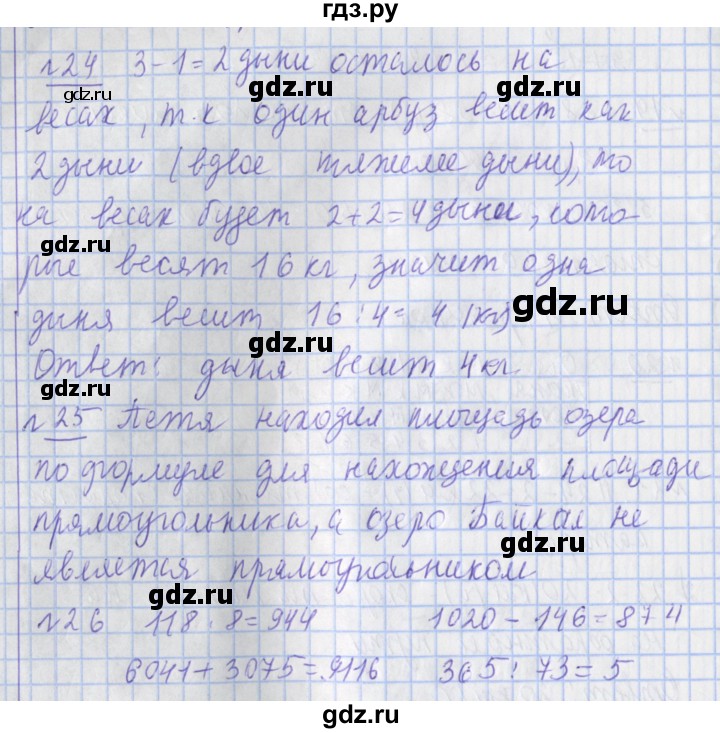 гдз.ру
№24 3-1=2 дыни осталось на
gdz.ru gdz.ru
весах, т.к один арбуз весит как
gdz.ru
2 дыни (вдвое тяжелее дыни), то
на весах будет 2+2=4 дыни, кото
gdz.ru gdz.ru
рые весят 16 кг, значит одна
дыня весит 16:4= 4 (кг)
gdz.ru gdz.ru
Ответ: дыня весит 4 кг.
№25 Петя находил площадь озера
gdz.ru
по формуле для нахождения площади
gdz.ru
прямоугольника, а озеро Байкал не
gdz.ru
является прямоугольником
№26 118·8=944 1020-146=874
gdz.ru gdz.ru
6041+3075=9116 365:73=5
gdz.ru gdz.ru